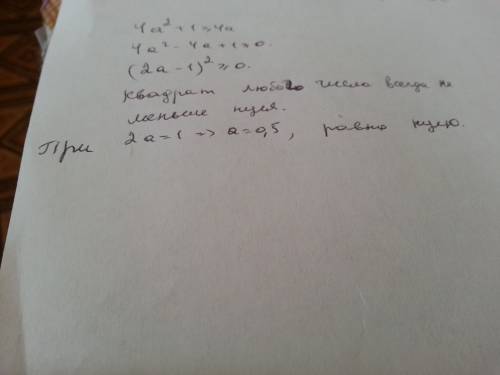 4a² + 1 ≥ 4a
4a² - 4a + 1 ≥ 0.
(2a - 1)² ≥ 0.
Квадрат любого числа всегда не
меньше нуля.
При 2a = 1 => a = 0,5, равно нулю.